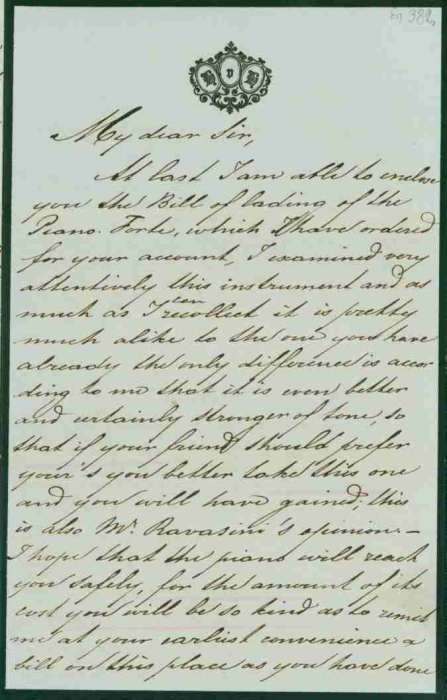 En 382,
B v B
My dear Sir,
At last I am able to enclose
you the Bill of lading of the
Piano. Forte, which I have ordered
for your account, I examined very
attentively this instrument and as
much as I can recollect it is pretty
much alike to the one you have
already the only difference is accor
ding to me that it is even better
and certainly stronger of tone, so
that if your friend should prefer
your's you better take this one
and you will have gained; this
is also Mr. Ravasini's opinion.—
I hope that the piano will reach
you safely, for the amount of its
cost you will be so kind as to remit
me at your earliest convenience a
bill on this place as you have done